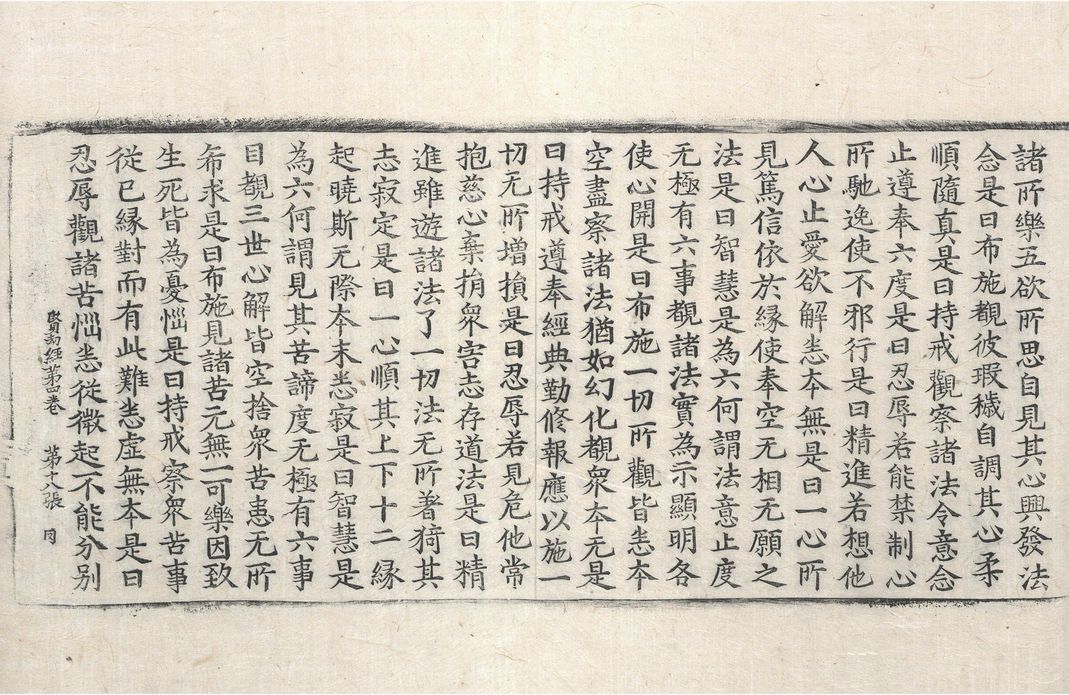 諸所樂五欲所思自見其心興發法
念是曰布施觀彼瑕穢自調其心柔
順隨真是曰持戒觀察諸法令意念
止遵奉六度是曰忍辱若能禁制心
所馳逸使不邪行是曰精進若想他
人心止愛欲解恙夲無是曰一心所
見篤信依於縁使奉空无相无願之
法是曰智慧是為六何謂法意止度
无極有六事觀諸法實為示顯明各
使心開是曰布施一切所觀皆恙夲
空盡察諸法猶如幻化觀衆夲无是
曰持戒遵奉經典勤修報應以施一
切无所增損是曰忍辱若見危他常
抱慈心棄捐衆害志存道法是曰精
進雖遊諸法了一切法无所著猗其
志寂定是曰一心順其上下十二縁
起曉斯无際夲末恙寂是曰智慧是
為六何謂見其苦諦度无極有六事
目覩三世心解皆空捨衆苦恚无所
希求是曰布施見諸苦元無一可樂因致
生死皆為憂惱是曰持戒察衆苦事
從已縁對而有此難恙虛無夲是曰
賢劫經第四卷 第十八張 同
忍辱觀諸苦惱恙從微起不能分别